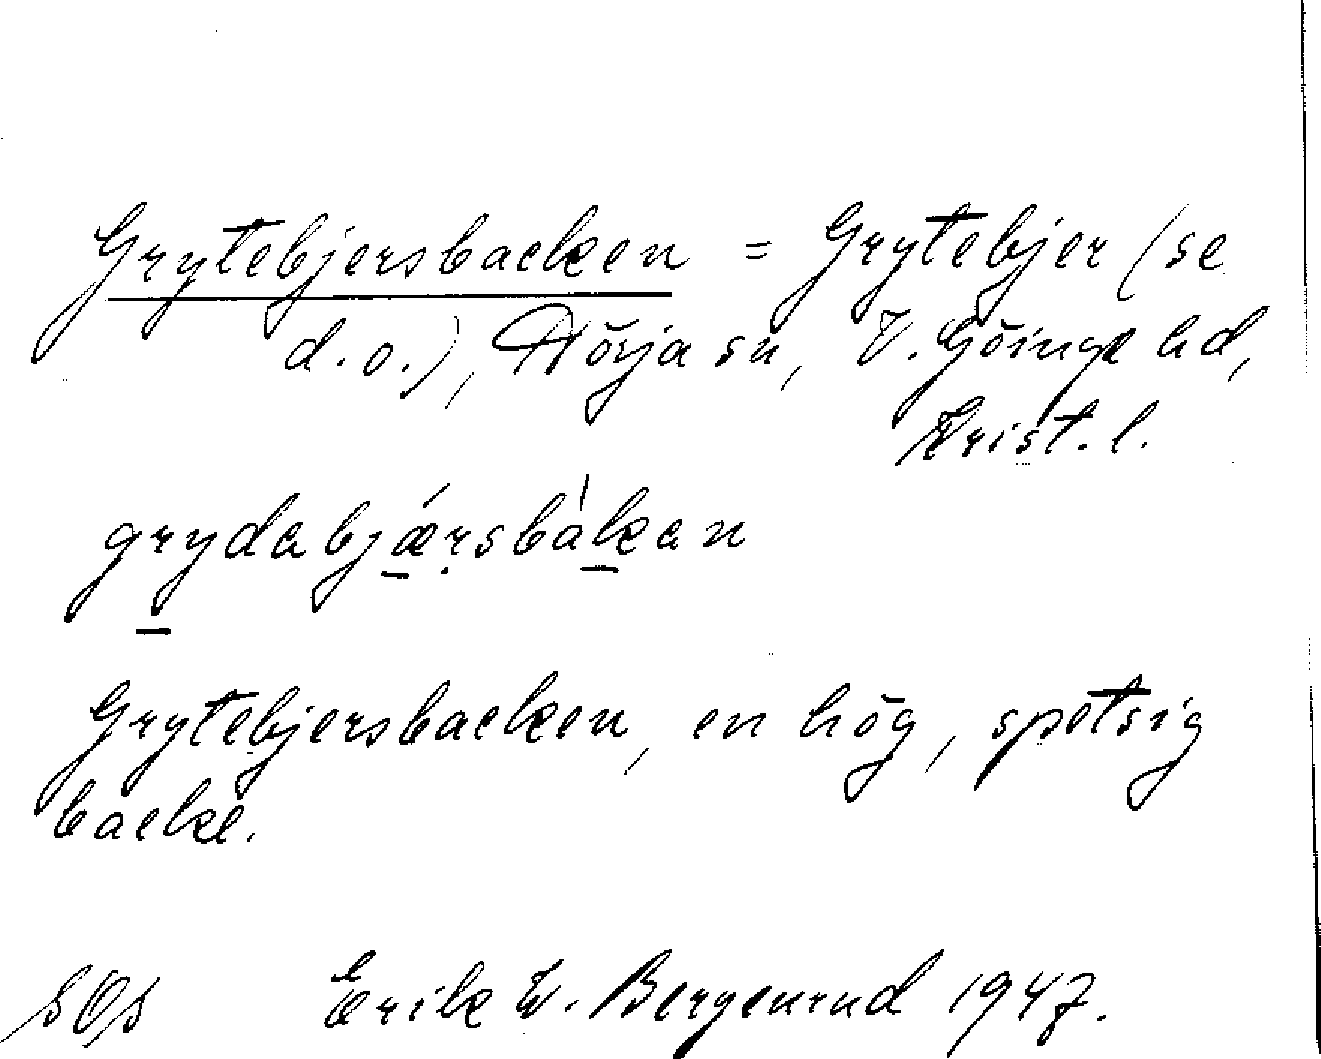 Grytebjersbacken = Grytebjer (se
d.o.), Hörja sn, V. Göinge hd,
Krist. l.
grydabjǽrsbàkan
Grytebjersbacken, en hög, spetsig
backe.
SOS Erik W. Bergenrud 1947.